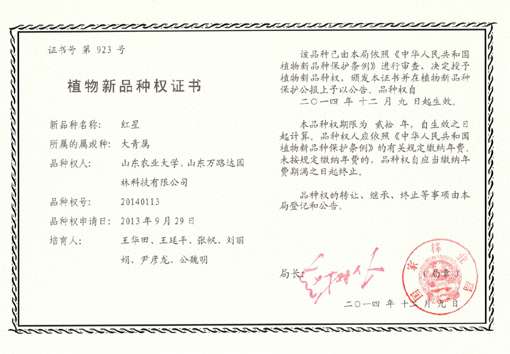 证书号 第 923 号
植物新品种权证书
新品种名称: 红星
所属的属或种: 大青属
品种权人: 山东农业大学、山东万路达园
林科技有限公司
品种权号: 20140113
品种权申请日: 2013年9月29日
培育人: 王华田、王延平、张帆、刘丽
娟、尹彦龙、公魏明
该品种已由本局依照《中华人民共和国
植物新品种保护条例》进行审查，决定授予
植物新品种权，颁发本证书并在植物新品种
保护公报上予以公告。品种权自
二〇一四年 十二 月 九 日起生效。
本品种权期限为 贰拾 年，自生效之日
起计算。品种权人应依照《中华人民共和国
植物新品种保护条例》的有关规定缴纳年费。
未按规定缴纳年费的，品种权自应当缴纳年
费期满之日起终止。
品种权的转让、继承、终止等事项由本
局登记和公告。
局长:
(局章)
国家林业局
二〇一四年 十二 月 九 日